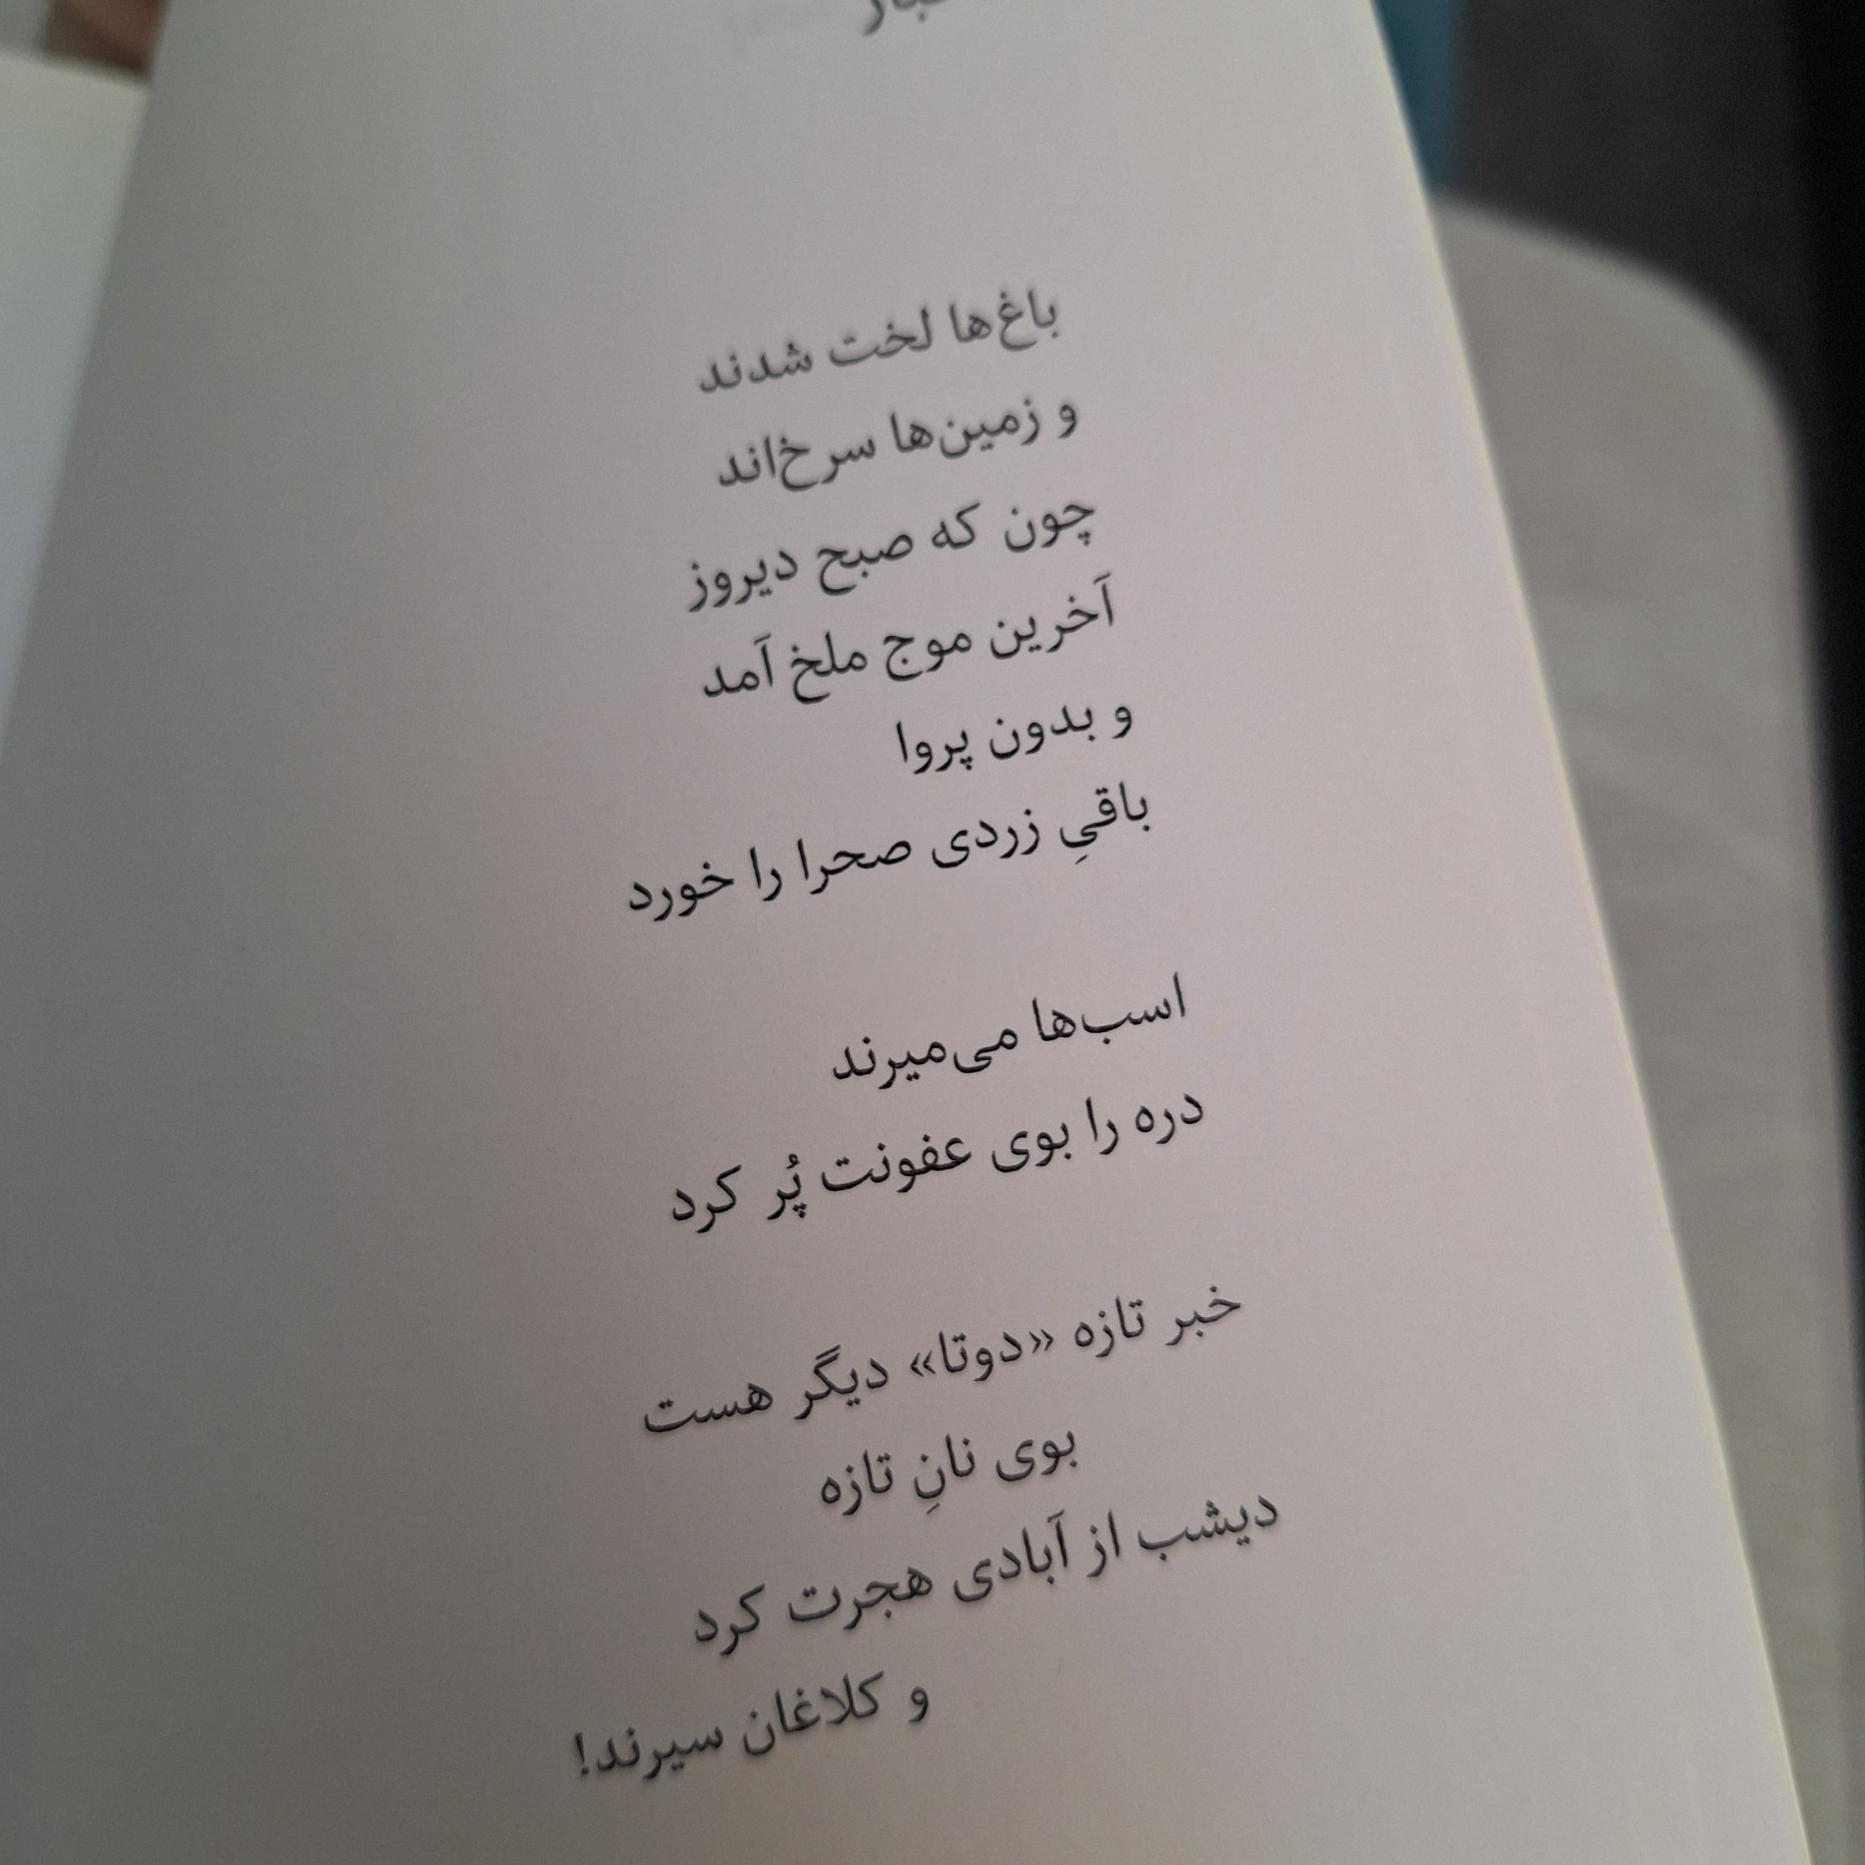 باغ‌ها لخت شدند
و زمین‌ها سرخ‌اند
چون که صبح دیروز
آخرین موج ملخ آمد
و بدون پروا
باقیِ زردی صحرا را خورد
اسب‌ها می‌میرند
دره را بوی عفونت پُر کرد
خبر تازه «دوتا» دیگر هست
بوی نانِ تازه
دیشب از آبادی هجرت کرد
و کلاغان سیرند!